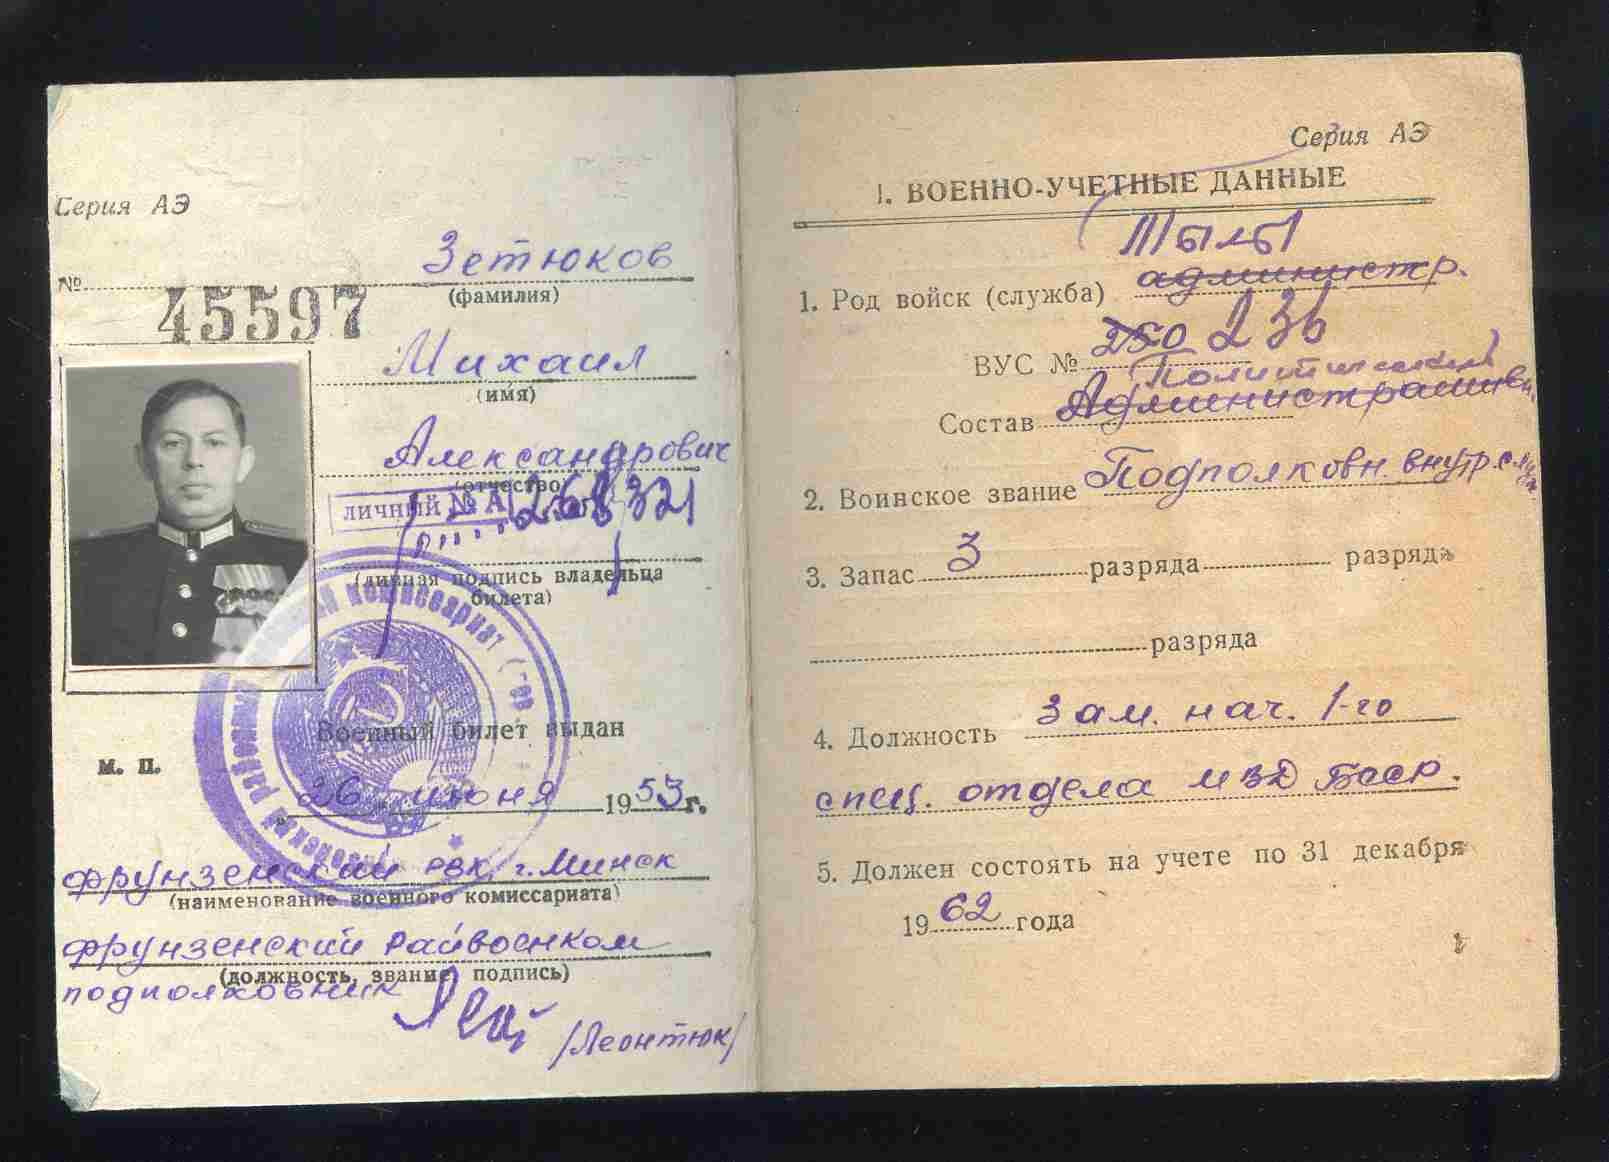 Серия АЭ
№ 45597
Зетюков
(фамилия)
Михаил
(имя)
Александрович
(отчество)
ЛИЧНЫЙ № А 268321
(личная подпись владельца
билета)
Военный билет выдан
М. П.
26 июня 1953 г.
Фрунзенский РВК, г. Минск
(наименование военного комиссариата)
Фрунзенский Райвоенком
(должность, звание, подпись)
подполковник
/Леонтюк/
Серия АЭ
1. ВОЕННО-УЧЕТНЫЕ ДАННЫЕ
Тылы
1. Род войск (служба) администр.
ВУС № 250 236
Политический
Состав Административн.
2. Воинское звание Подполковн. внутр. служ.
3. Запас 3 разряда разряда
разряда
4. Должность зам. нач. 1-го
спец. отдела МВД Бсср.
5. Должен состоять на учете по 31 декабря
1962 года